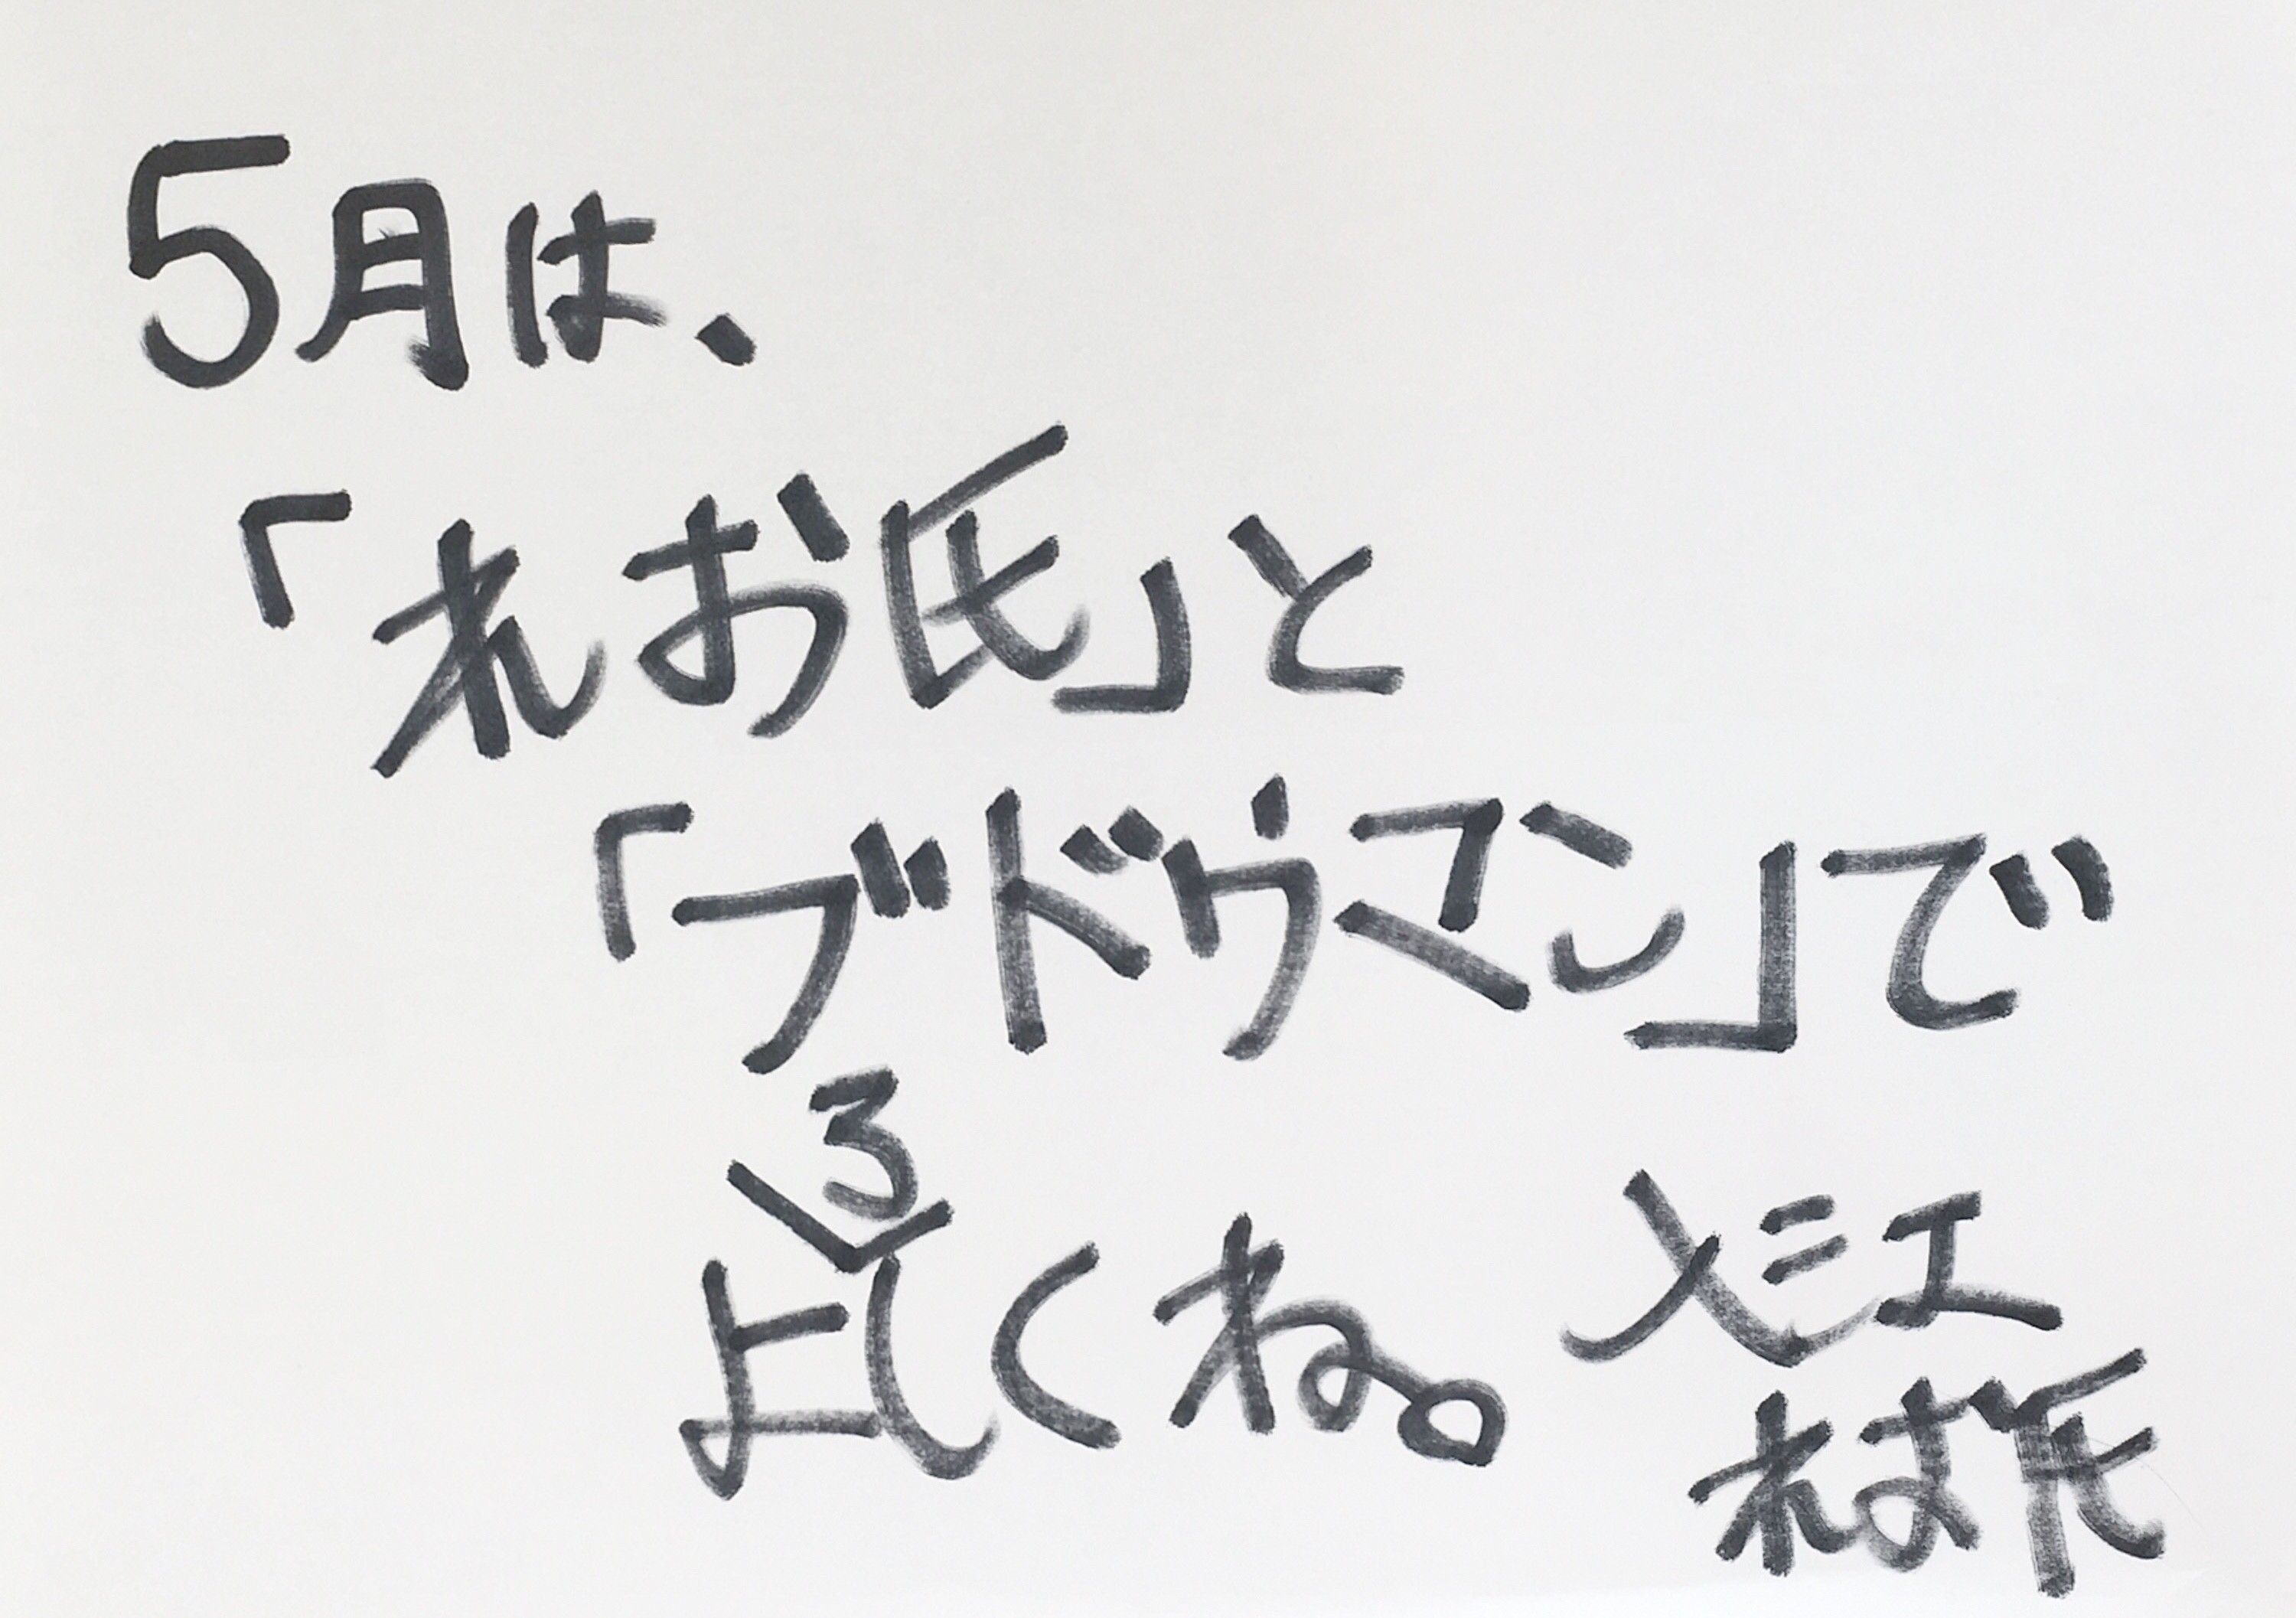 5月は、
「れお氏」と
「ブドウマン」で
よろしくね。
れお氏